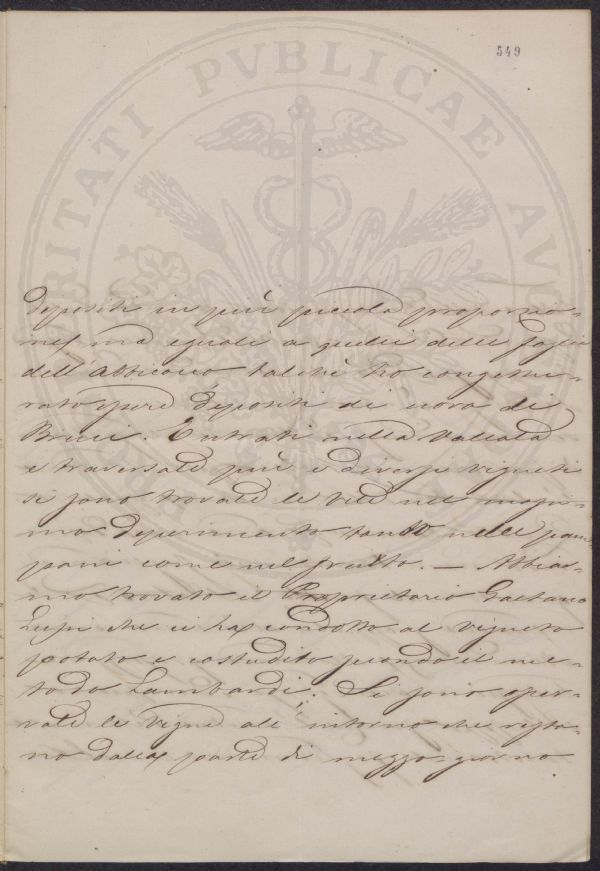 549
PROSPERITATI PVBLICAE AVGENDAE
depositi in più piccola proporzio=
ne, ma eguali a quelli delle foglie
dell'Albicocco talchè ho conghiettu=
rato essere depositi di uova di
Bruci. Entrati nella Vallata
e traversate più e diverse vigneti
si sono trovate le viti nel massi=
mo deperimento tanto nelle pam=
pani come nel frutto. — Abbia=
mo trovato il Proprietario Gaetano
Lupi che ci ha condotto al vigneto
potato e custudito secondo il me=
todo Lambardi. Si sono osser=
vate le vigne all'intorno che resta=
no dalla parte di mezzo-giorno